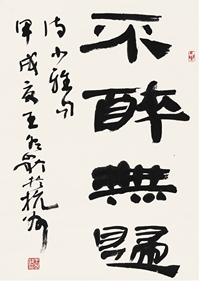 不醉無歸
詩小雅句
甲戌夏王冬齡於杭州